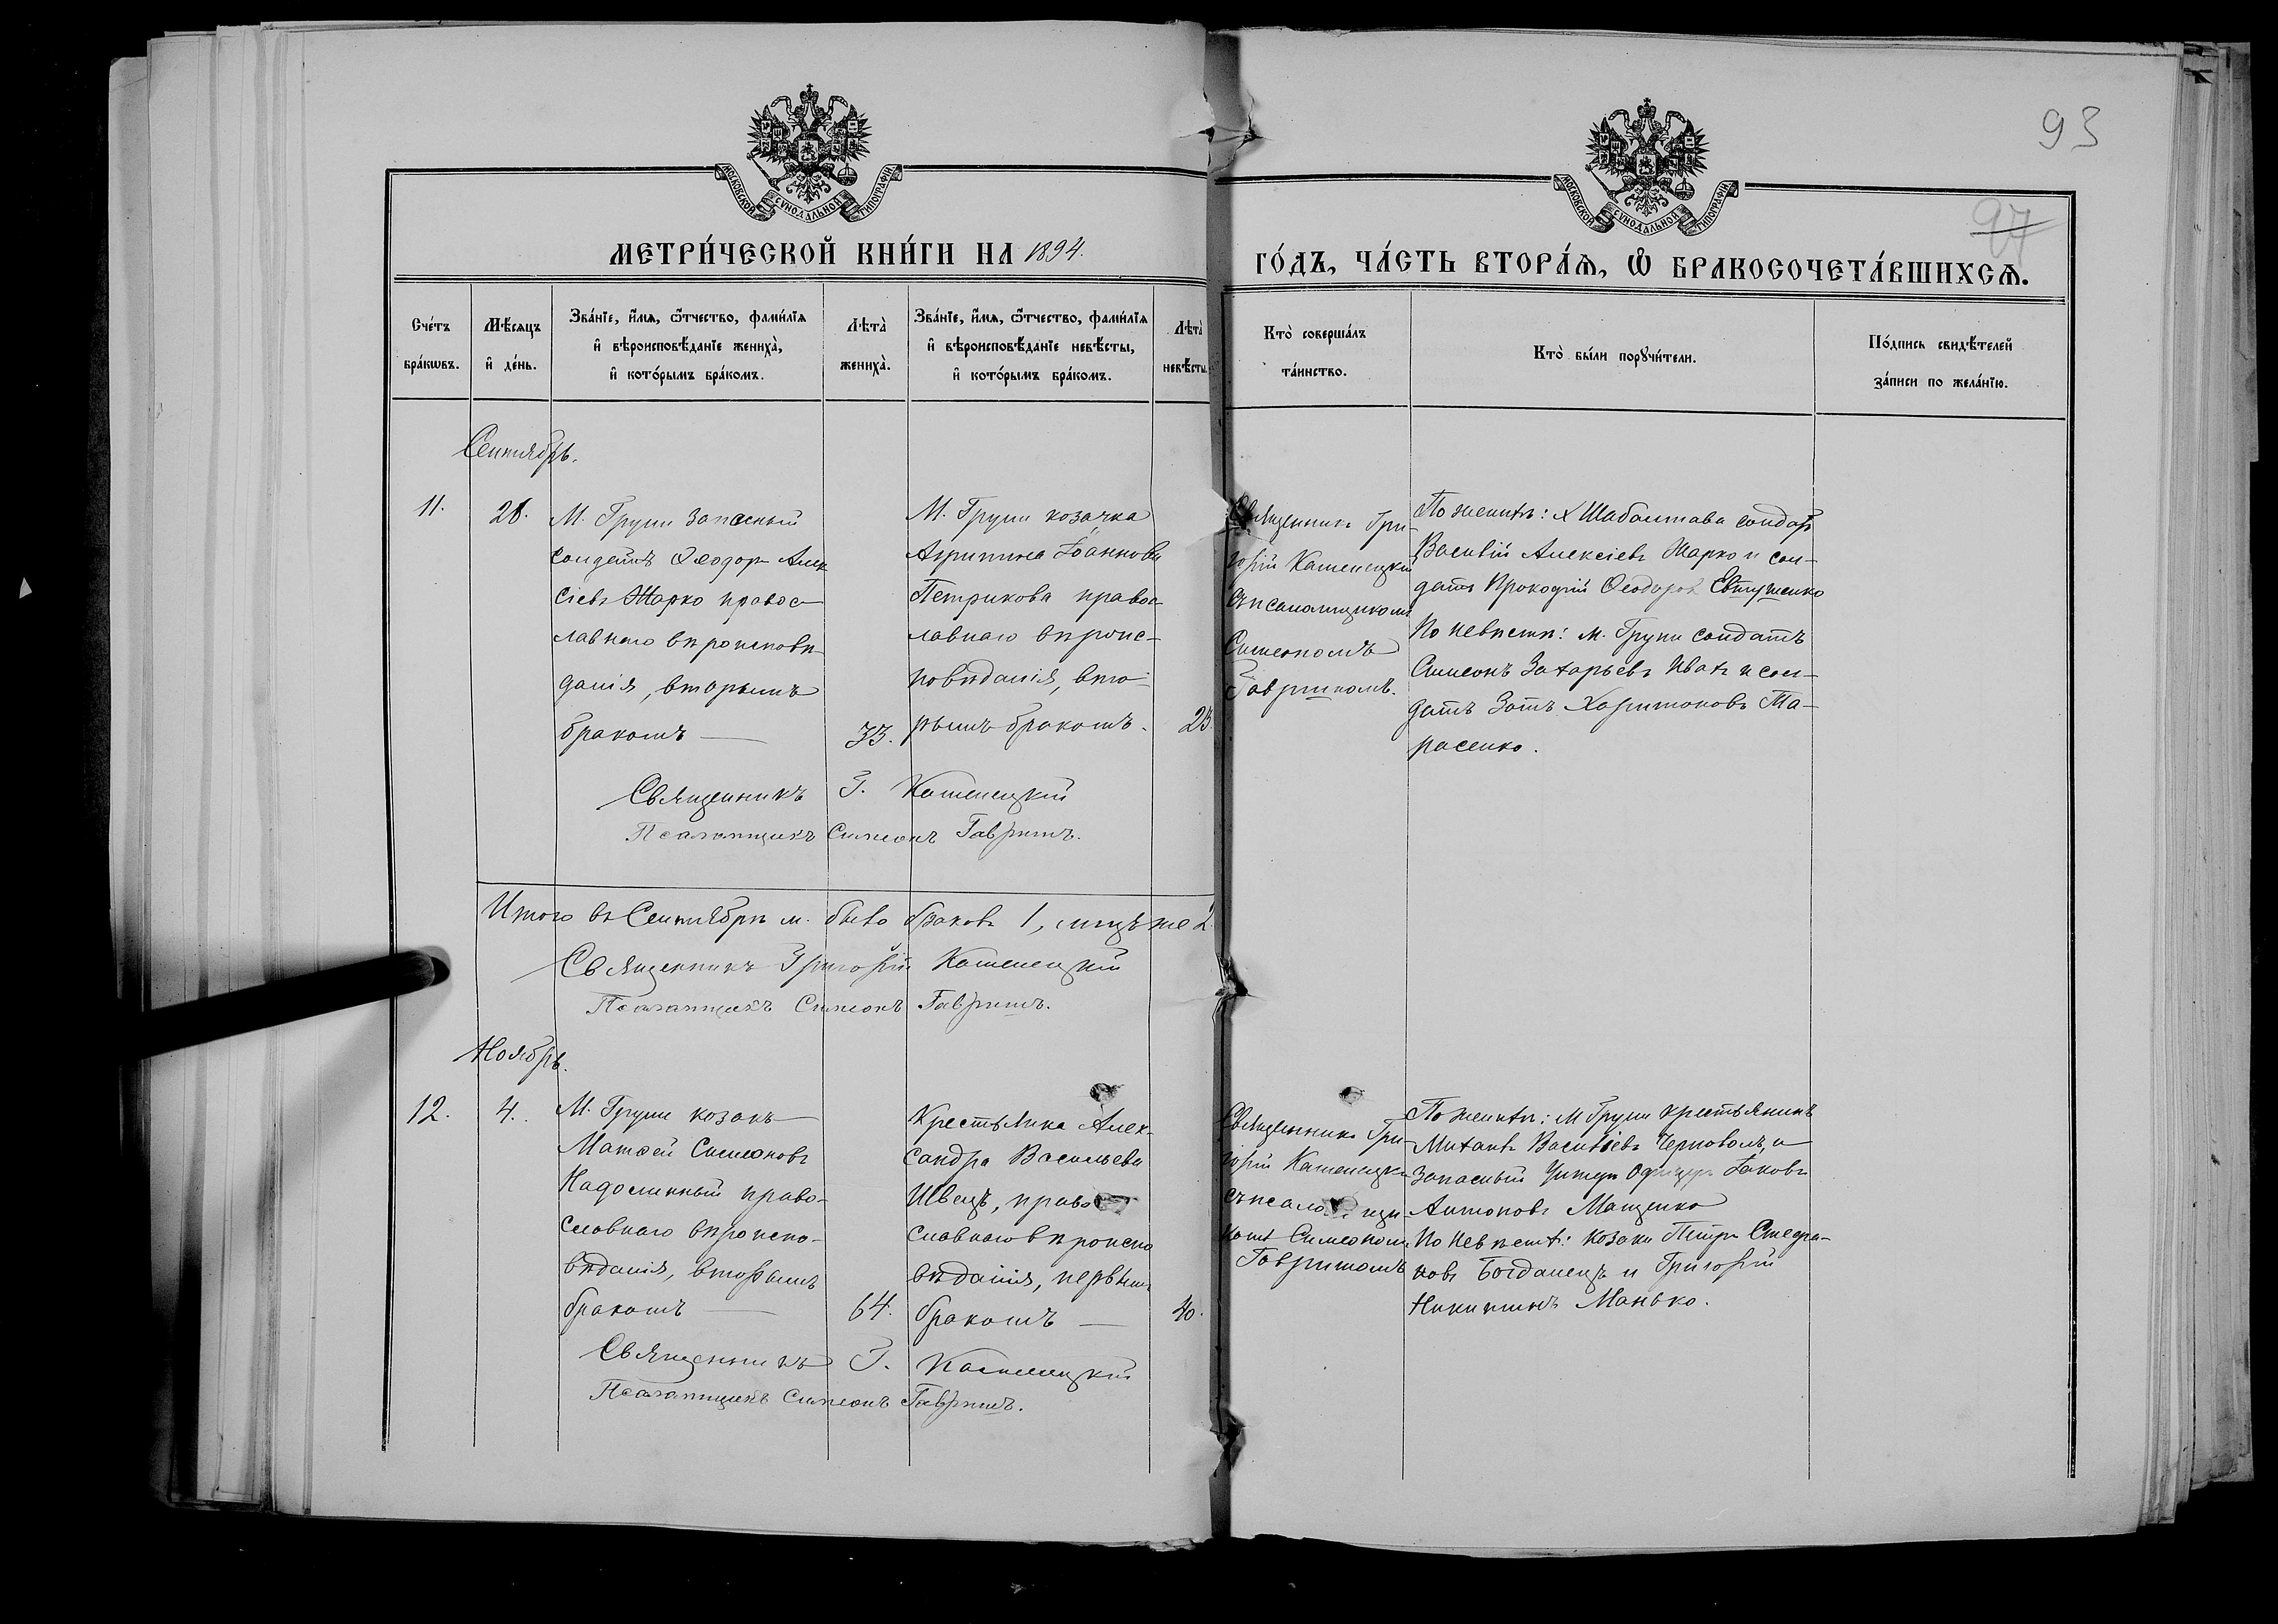 93
97
МОСКОВСКОЙ СѴНОДАЛЬНОЙ ТИПОГРАФІИ
МОСКОВСКОЙ СѴНОДАЛЬНОЙ ТИПОГРАФІИ
МЕТРИ́ЧЕСКОЙ КНИ́ГИ НА 1894.
ГО́ДЪ, ЧА́СТЬ ВТОРА́Ѧ, Ѽ БРАКОСОЧЕТА́ВШИХСѦ.
Сче́тъ
бра́кѡвъ.
Мѣ́сяцъ
и҆ де́нь.
Зва́нїе, и҆́мѧ, ѻ҆́тчество, фами́лїѧ
и҆ вѣроисповѣ́данїе жениха̀,
и҆ кото́рымъ бра́комъ.
Лѣта̀
жениха̀.
Зва́нїе, и҆́мѧ, ѻ҆́тчество, фами́лїѧ
и҆ вѣроисповѣ́данїе невѣ́сты,
и҆ кото́рымъ бра́комъ.
Лѣта̀
невѣ́сты.
Кто̀ соверша́лъ
та́инство.
Кто̀ бы́ли порꙋчи́тели.
По́дпись свидѣ́телей
за́писи по жела́нїю.
Сентябрь.
11.
28.
М. Груни запасный
солдатъ Ѳеодоръ Алек
сіевъ Жарко правос
лавнаго вѣроисповѣ
данія, вторымъ
бракомъ
33.
М. Груни козачка
Агрипина Іоаннова
Петрикова правос
лавнаго вѣроис-
повѣданія, вто-
рымъ бракомъ.
25.
Священникъ Гри-
горій Каменецкій
съ псаломщикомъ
Симеономъ
Гавришомъ.
По женихѣ: х Шаболтава солдатъ
Василій Алексіевъ Жарко и сол-
датъ Прокофій Ѳеодоровъ Евтушенко
По невѣстѣ: м. Груни солдатъ
Симеонъ Захарьевъ Ивах и сол-
датъ Зотъ Харитоновъ Та-
расенко.
Священникъ Г. Каменецкій
Псаломщикъ Симеонъ Гавришъ.
Итого въ Сентябрѣ м. было браковъ 1, лицъ же 2
Священникъ Григорій Каменецкій
Псаломщикъ Симеонъ Гавришъ.
Ноябрь.
12.
4.
М. Груни козакъ
Матѳей Симеоновъ
Надолинный право-
славнаго вѣроиспо-
вѣданія, вторымъ
бракомъ
64.
Крестьянка Алек-
сандра Васильева
Швецъ, право
славнаго вѣроиспо
вѣданія, первымъ
бракомъ
40.
Священникъ Гри-
горій Каменецкій
съ псаломщи-
комъ Симеономъ
Гавришомъ
По женихѣ: М Груни крестьянинъ
Михаилъ Василіевъ Черноволъ, и
запасный Унтеръ Офицеръ Іаковъ
Антоновъ Мащенко
По невѣстѣ: козаки Петръ Стефа-
новъ Богданецъ и Григорій
Никитинъ Манько.
Священникъ Г. Каменецкій
Псаломщикъ Симеонъ Гавришъ.